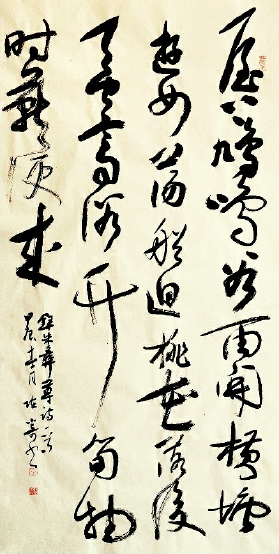 屋上鸠鸣谷雨开横塘
游女荡船迴桃花落后
蚕齐浴竹笋抽
时燕便来
朱彝尊诗一首
春月